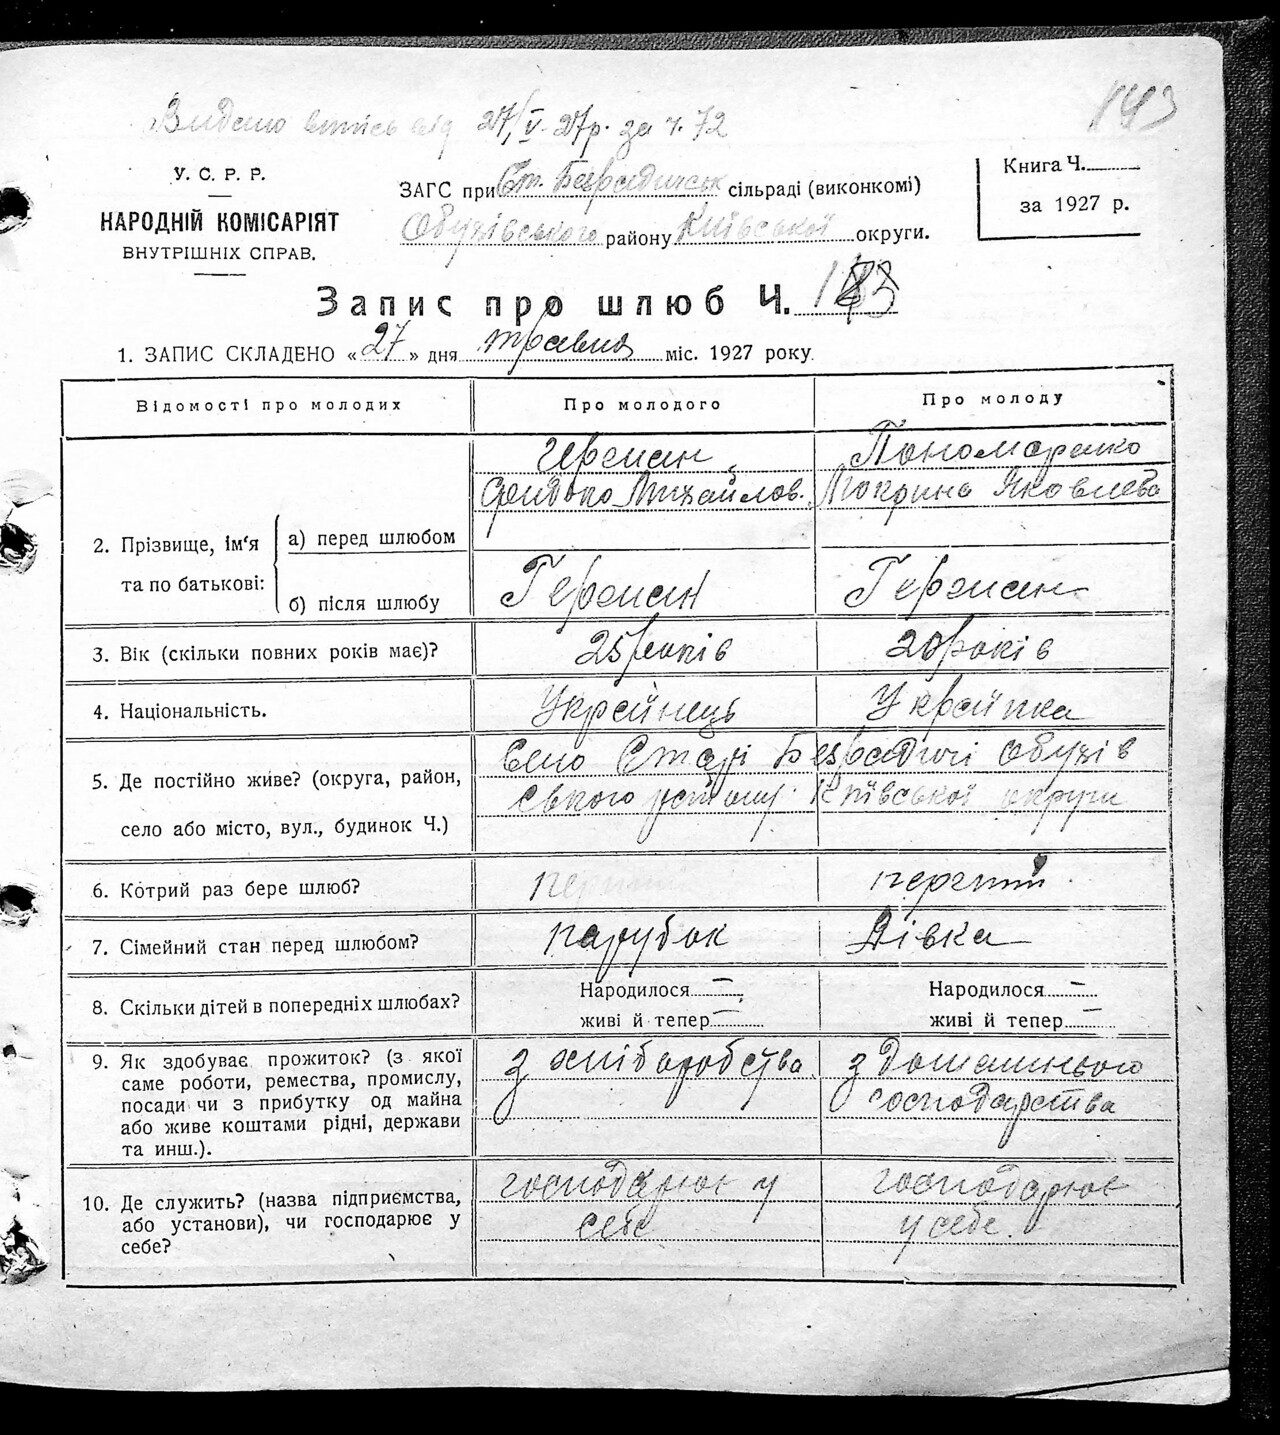 Видано витяг від 27/V-27р. за ч. 72
143
У. С. Р. Р.
НАРОДНІЙ КОМІСАРІЯТ
ВНУТРІШНІХ СПРАВ.
ЗАГС при Ст. Безрадичськ сільраді (виконкомі)
Обухівського району Київської округи.
Книга Ч.
за 1927 р.
Запис про шлюб Ч.
1. ЗАПИС СКЛАДЕНО «27» дня травня міс. 1927 року.
Відомості про молодих Про молодого Про молоду
2. Прізвище, ім'я та по батькові:
а) перед шлюбом
Герман Михайлов.
Пономаренко Мокрина Яковлева
б) після шлюбу
Герман Герман
3. Вік (скільки повних років має)? 25 років 20 років
4. Національність. Українець Українка
5. Де постійно живе? (округа, район,
село або місто, вул., будинок Ч.)
Село Старі Безрадичі Обухів
ського Київської округи
6. Котрий раз бере шлюб? перший перший
7. Сімейний стан перед шлюбом? парубок Дівка
8. Скільки дітей в попередніх шлюбах? Народилося — Народилося —
живі й тепер — живі й тепер —
9. Як здобуває прожиток? (з якої
саме роботи, ремества, промислу,
посади чи з прибутку од майна
або живе коштами рідні, держави
та инш.).
з хліборобства
з домашнього
господарства
10. Де служить? (назва підприємства,
або установи), чи господарює у
себе?
господарює у
себе
господарює
у себе.